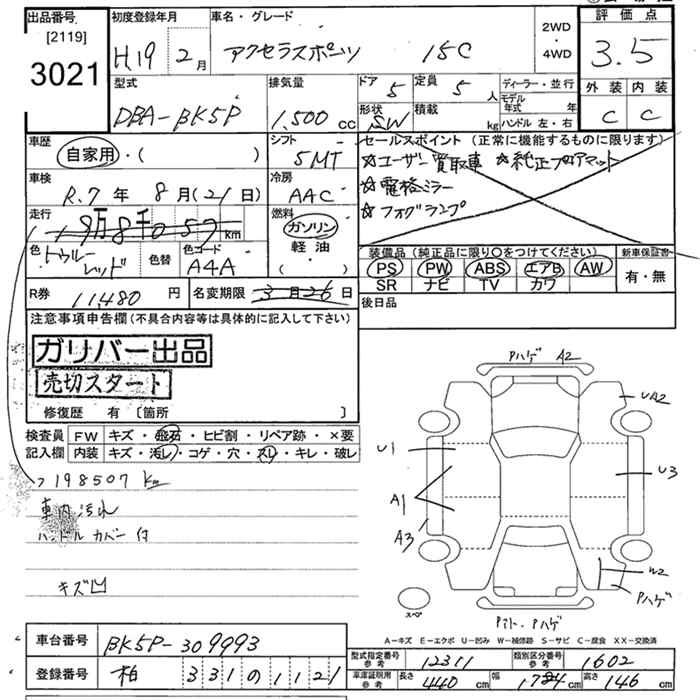 出品番号 初度登録年月 車名・グレード 2WD・4WD 評価点
[2119]
3021 H19 2月 アクセラスポーツ 15C 3.5
型式 排気量 ドア 5 定員 5人 ディーラー・並行 外装 内装
モデル年式 年
DBA-BK5P 1,500cc 形状 SW 積載 kg ハンドル 左・右 C C
車歴 シフト セールスポイント (正常に機能するものに限ります)
自家用・( ) 5MT ☆ユーザー買取車 ☆純正フロアマット
車検 冷房 ☆電格ミラー
R.7年 8月(21日) AAC ☆フォグランプ
走行 燃料
19万8千057km ガソリン
軽油・( )
色 トゥルーレッド 色替 色コード A4A
装備品 (純正品に限り〇をつけてください) 新車保証書
PS PW ABS エアB AW 有・無
SR ナビ TV カワ
R券 11480円 名変期限 3月26日
後日品
注意事項申告欄(不具合内容等は具体的に記入して下さい)
ガリバー出品
売切スタート
修復歴 有 〔箇所 〕
検査員記入欄 FW キズ・飛石・ヒビ割・リペア跡・×要
内装 キズ・汚レ・コゲ・穴・スレ・キレ・破レ
→198507km
車内汚れ
ハンドルカバー付
キズ凹
Pハゲ A2
UA2
U1
U3
A1
A3
W2
Pハゲ
スペ
Pハト・Pハゲ
A-キズ E-エクボ U-凹み W-補修跡 S-サビ C-腐食 XX-交換済
車台番号 BK5P-309993
登録番号 柏 331の1121
型式指定番号 参考 12311 類別区分番号 参考 1602
車庫証明用 参考 長さ 440cm 幅 174cm 高さ 146cm